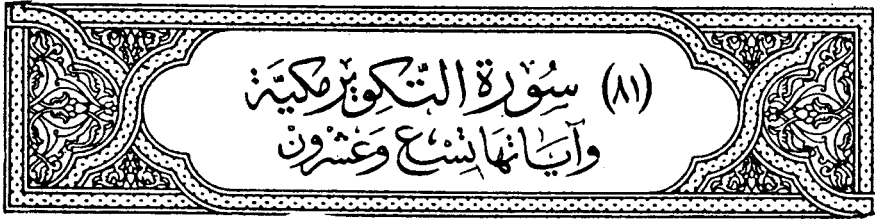 (٨١) سُورَة التَّكوير مَكيَّة
وَآيَاتهَا تِسْع وَعشرون